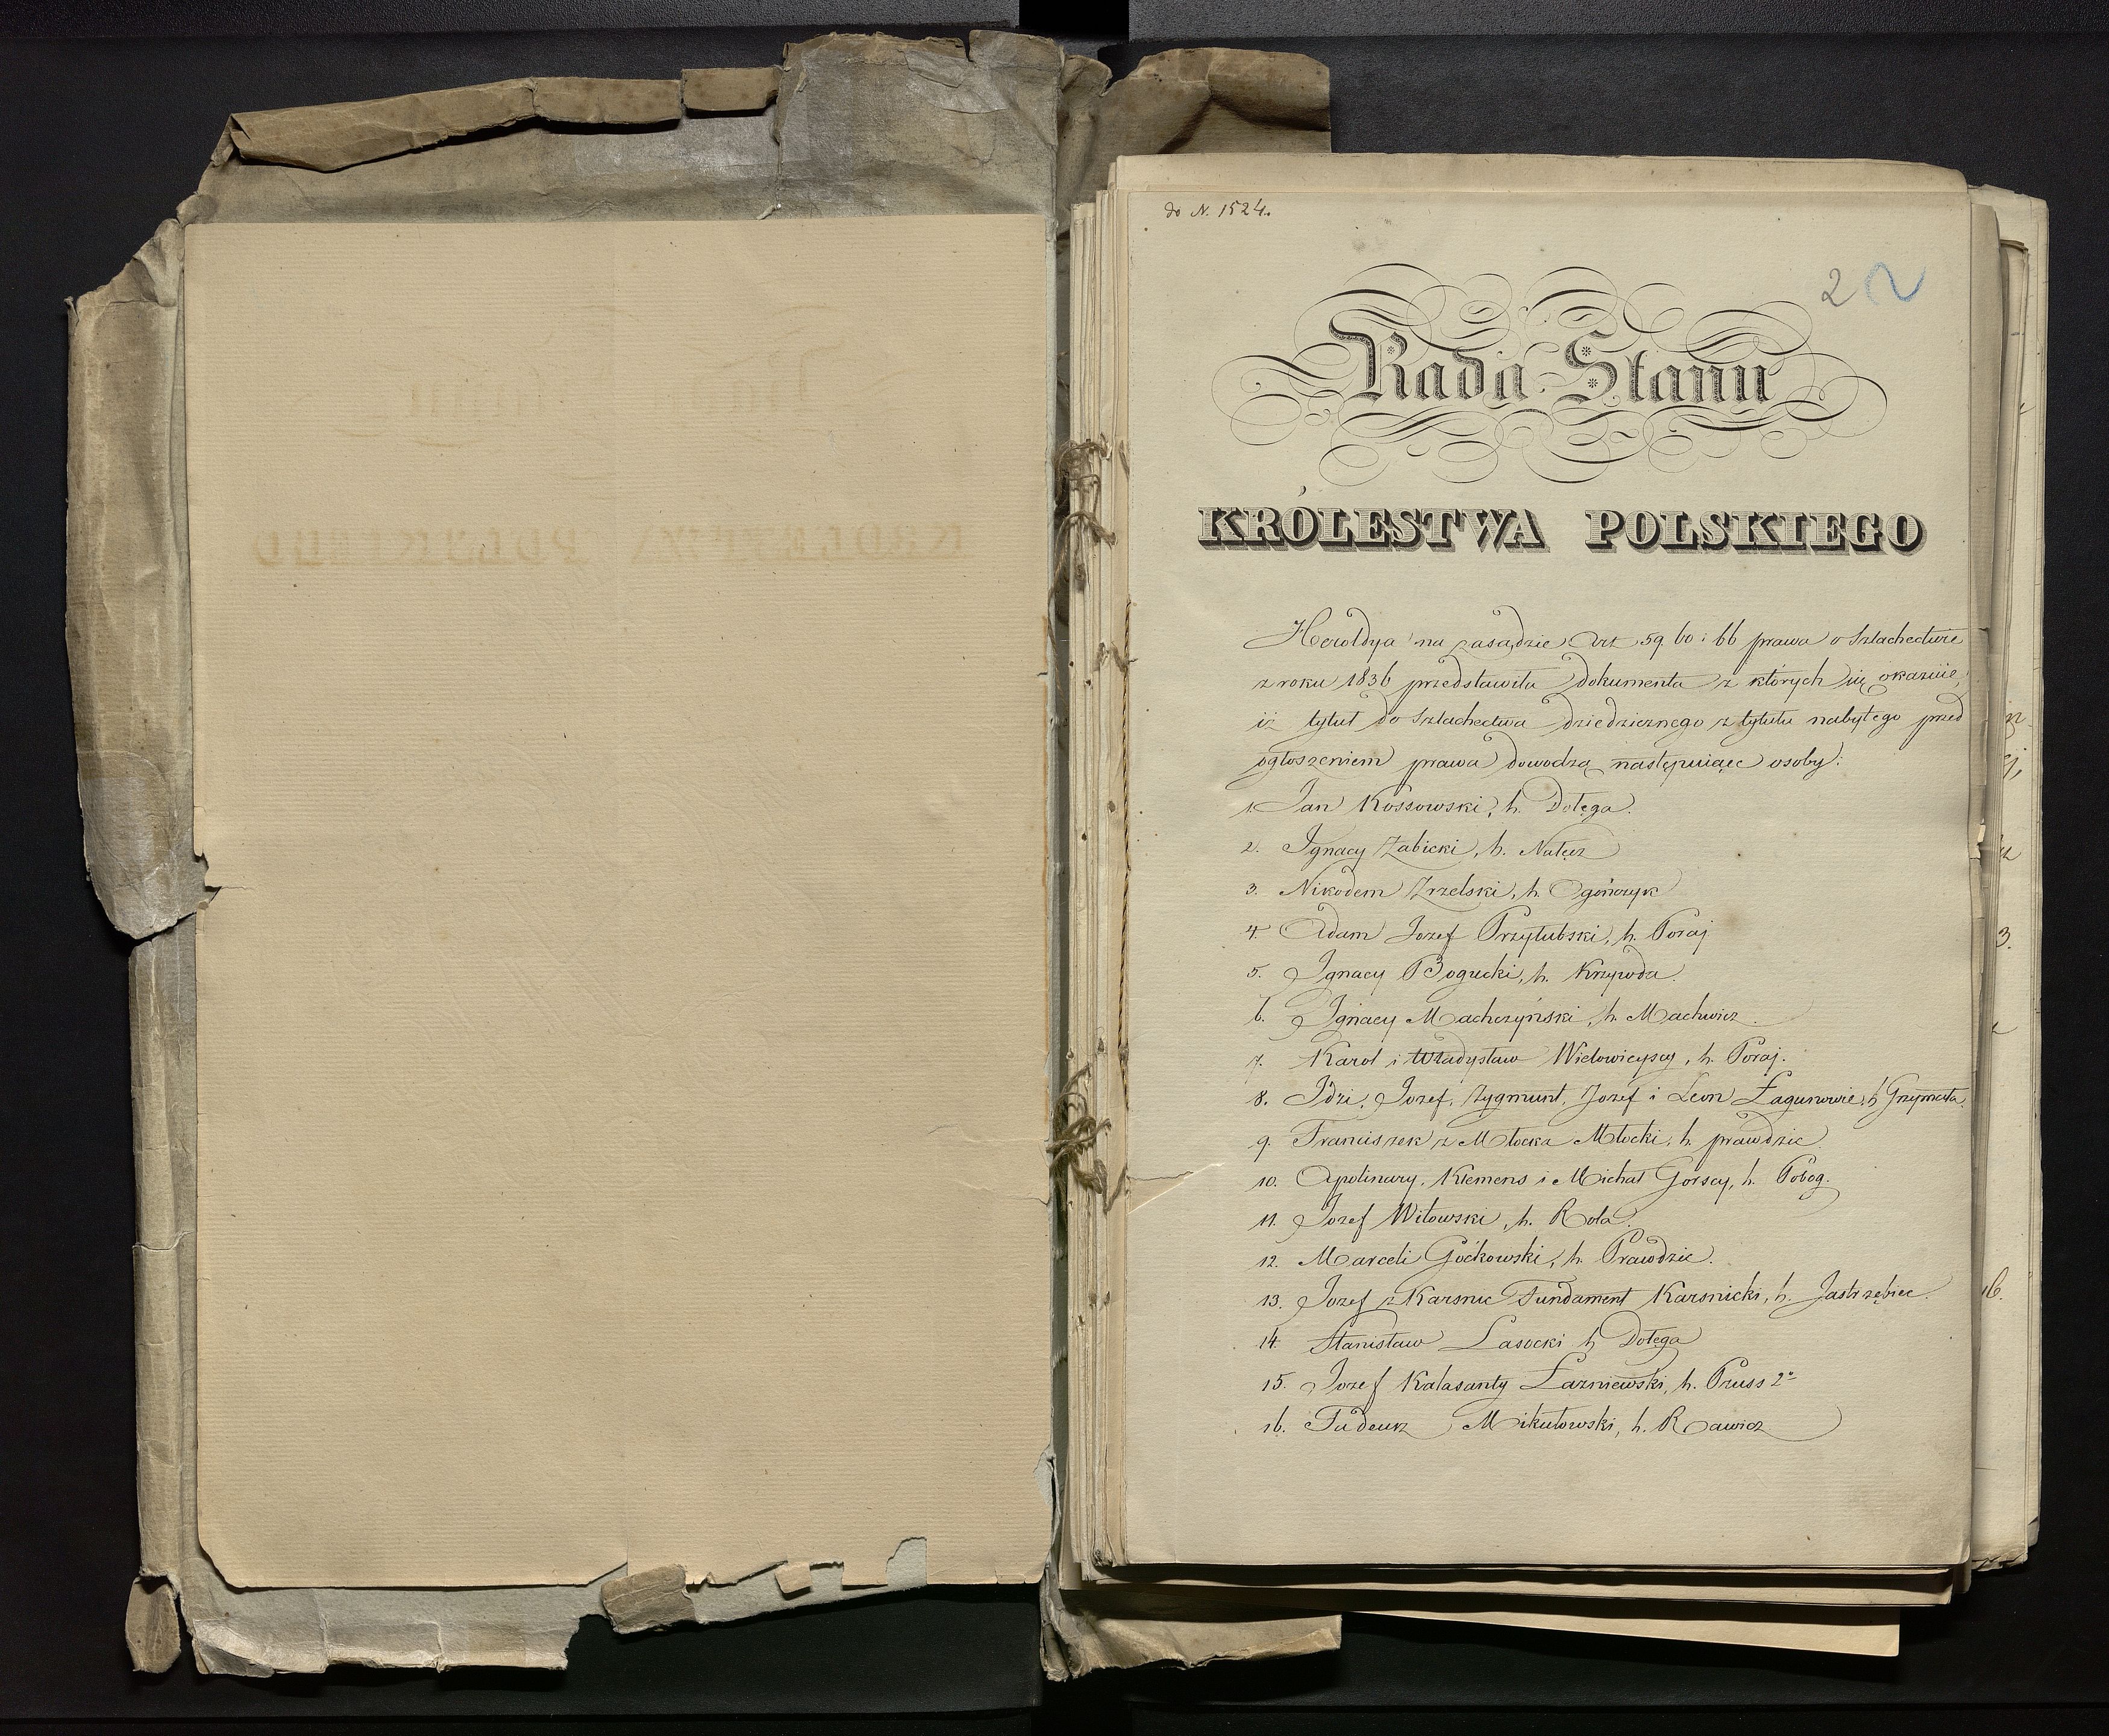 do N. 1524.
2 2
Rada Stanu
KRÓLESTWA POLSKIEGO
Heroldya na zasadzie Art 59. 60 i 66 prawa o Szlachectwie
z roku 1836 przedstawiła dokumenta z których się okazuie,
iż tytuł do Szlachectwa dziedzicznego z tytułu nabytego przed
ogłoszeniem prawa dowodzą następuiące osoby:
1. Jan Kossowski, h. Dołęga.
2. Ignacy Zabicki, h. Nałęcz
3. Nikodem Zrzelski, h. Ogończyk
4. Adam Jozef Przyłubski, h. Poraj
5. Ignacy Bogucki, h. Krzywda.
6. Ignacy Machczyński, h. Machwicz.
7. Karol i Władysław Wielowieyscy, h. Poraj.
8. Idzi, Jozef, Zygmunt, Jozef i Leon Łagunowie, h Grzymała.
9. Franciszek z Młocka Młocki, h. prawdzic
10. Apolinary, Klemens i Michał Gorscy, h. Pobog.
11. Jozef Witowski, h. Rola.
12. Marceli Goćkowski, h. Prawdzic.
13. Jozef z Karsnic Fundament Karsnicki, h. Jastrzębiec.
14. Stanisław Lasocki h Dołęga
15. Jozef Kalasanty Łazniewski, h. Pruss 2º
16. Tadeusz Mikułowski, h. Rawicz